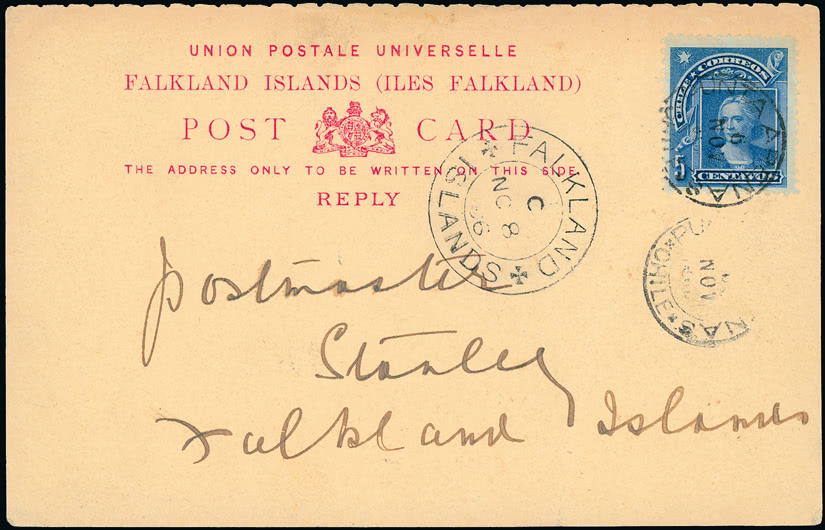 UNION POSTALE UNIVERSELLE
FALKLAND ISLANDS (ILES FALKLAND)
POST CARD
THE ADDRESS ONLY TO BE WRITTEN ON THIS SIDE
REPLY
CORREOS
5 CENTAVOS
NOV
FALKLAND ISLANDS
C
8
NOV
CHILE
Postmaster
Stanley
Falkland Islands